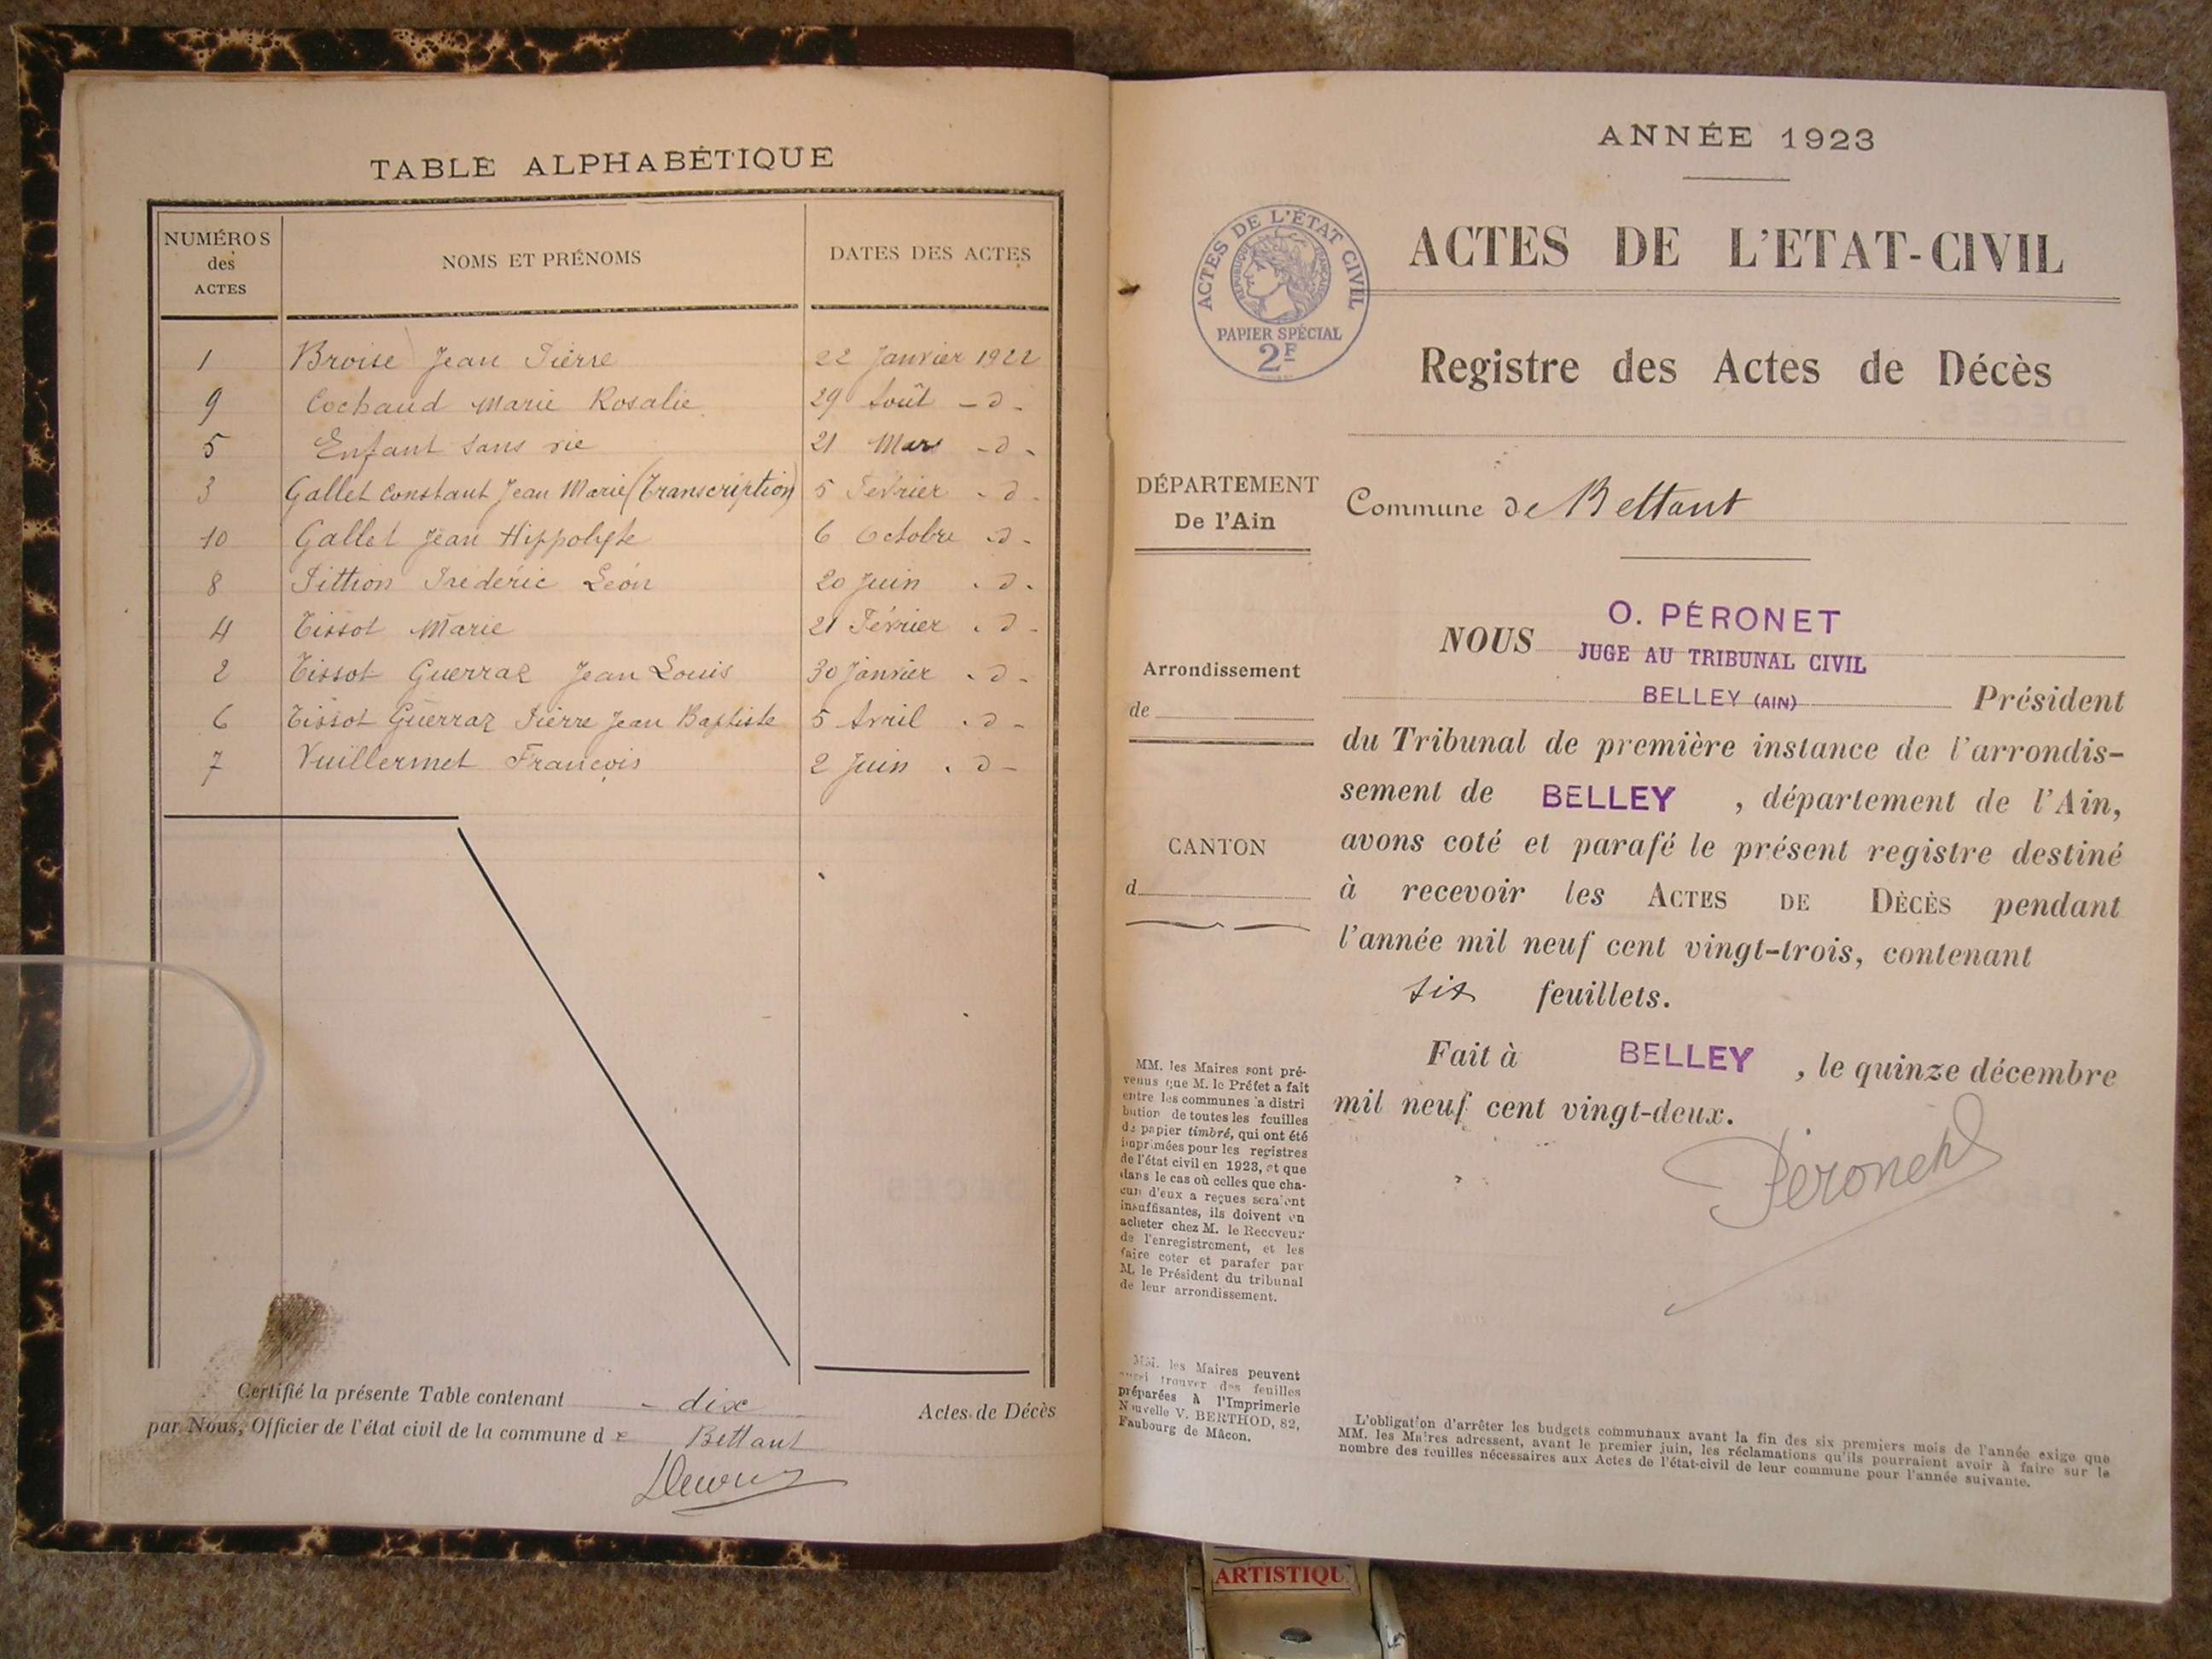 TABLE ALPHABÉTIQUE
NUMÉROS des ACTES
NOMS ET PRÉNOMS
DATES DES ACTES
1 Broise Jean Pierre 22 Janvier 1922
9 Cochaud Marie Rosalie 29 Août - d -
5 Enfant sans vie 21 Mars - d -
3 Gallet Constant Jean Marie (Transcription) 5 Février - d -
10 Gallet Jean Hippolyte 6 Octobre - d -
8 Pittion Frédéric Léon 20 Juin - d -
4 Tissot Marie 21 Février - d -
2 Tissot Guerraz Jean Louis 30 Janvier - d -
6 Tissot Guerraz Pierre Jean Baptiste 5 Avril - d -
7 Vuillermet François 2 Juin - d -
Certifié la présente Table contenant - dix Actes de Décès
par Nous, Officier de l'état civil de la commune de Bettant
ANNÉE 1923
ACTES DE L'ÉTAT CIVIL
RÉPUBLIQUE FRANÇAISE
PAPIER SPÉCIAL
2F
ACTES DE L'ETAT-CIVIL
Registre des Actes de Décès
DÉPARTEMENT
De l'Ain
Commune de Bettant
Arrondissement
de
CANTON
d
NOUS O. PÉRONET
JUGE AU TRIBUNAL CIVIL
BELLEY (AIN) Président
du Tribunal de première instance de l'arrondis-
sement de BELLEY, département de l'Ain,
avons coté et parafé le présent registre destiné
à recevoir les ACTES DE DÉCÈS pendant
l'année mil neuf cent vingt-trois, contenant
six feuillets.
Fait à BELLEY, le quinze décembre
mil neuf cent vingt-deux.
Péronet
MM. les Maires sont pré-
venus que M. le Préfet a fait
entre les communes la distri
bution de toutes les feuilles
de papier timbré, qui ont été
imprimées pour les registres
de l'état civil en 1923, et que
dans le cas où celles que cha-
cun d'eux a reçues seraient
insuffisantes, ils doivent en
acheter chez M. le Receveur
de l'enregistrement, et les
faire coter et parafer par
M. le Président du tribunal
de leur arrondissement.
MM. les Maires peuvent
aussi trouver des feuilles
préparées à l'Imprimerie
Nouvelle V. BERTHOD, 82,
Faubourg de Mâcon.
L'obligation d'arrêter les budgets communaux avant la fin des six premiers mois de l'année exige que
MM. les Maires adressent, avant le premier juin, les réclamations qu'ils pourraient avoir à faire sur le
nombre des feuilles nécessaires aux Actes de l'état-civil de leur commune pour l'année suivante.
ARTISTIQU